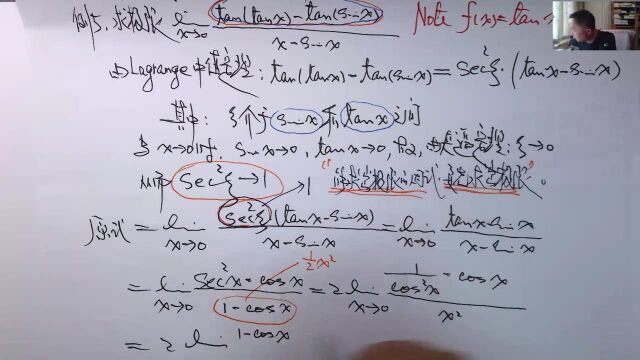 例5. 求极限 lim x→0 tan(tanx)-tan(sinx) / x-sinx Note f(x)=tanx
由Lagrange中值定理: tan(tanx)-tan(sinx)=sec²ξ·(tanx-sinx)
其中: ξ介于 sinx 和 tanx 之间
当x→0时, sinx→0, tanx→0, 所以, 由夹逼定理: ξ→0
从而 sec²ξ→1
→1
原式 = lim x→0 sec²ξ(tanx-sinx) / x-sinx = lim x→0 tanx-sinx / x-sinx
½x²
= lim x→0 sec²x-cosx / 1-cosx = 2 lim x→0 1/cos²x - cosx / x²
= 2 lim 1-cosx